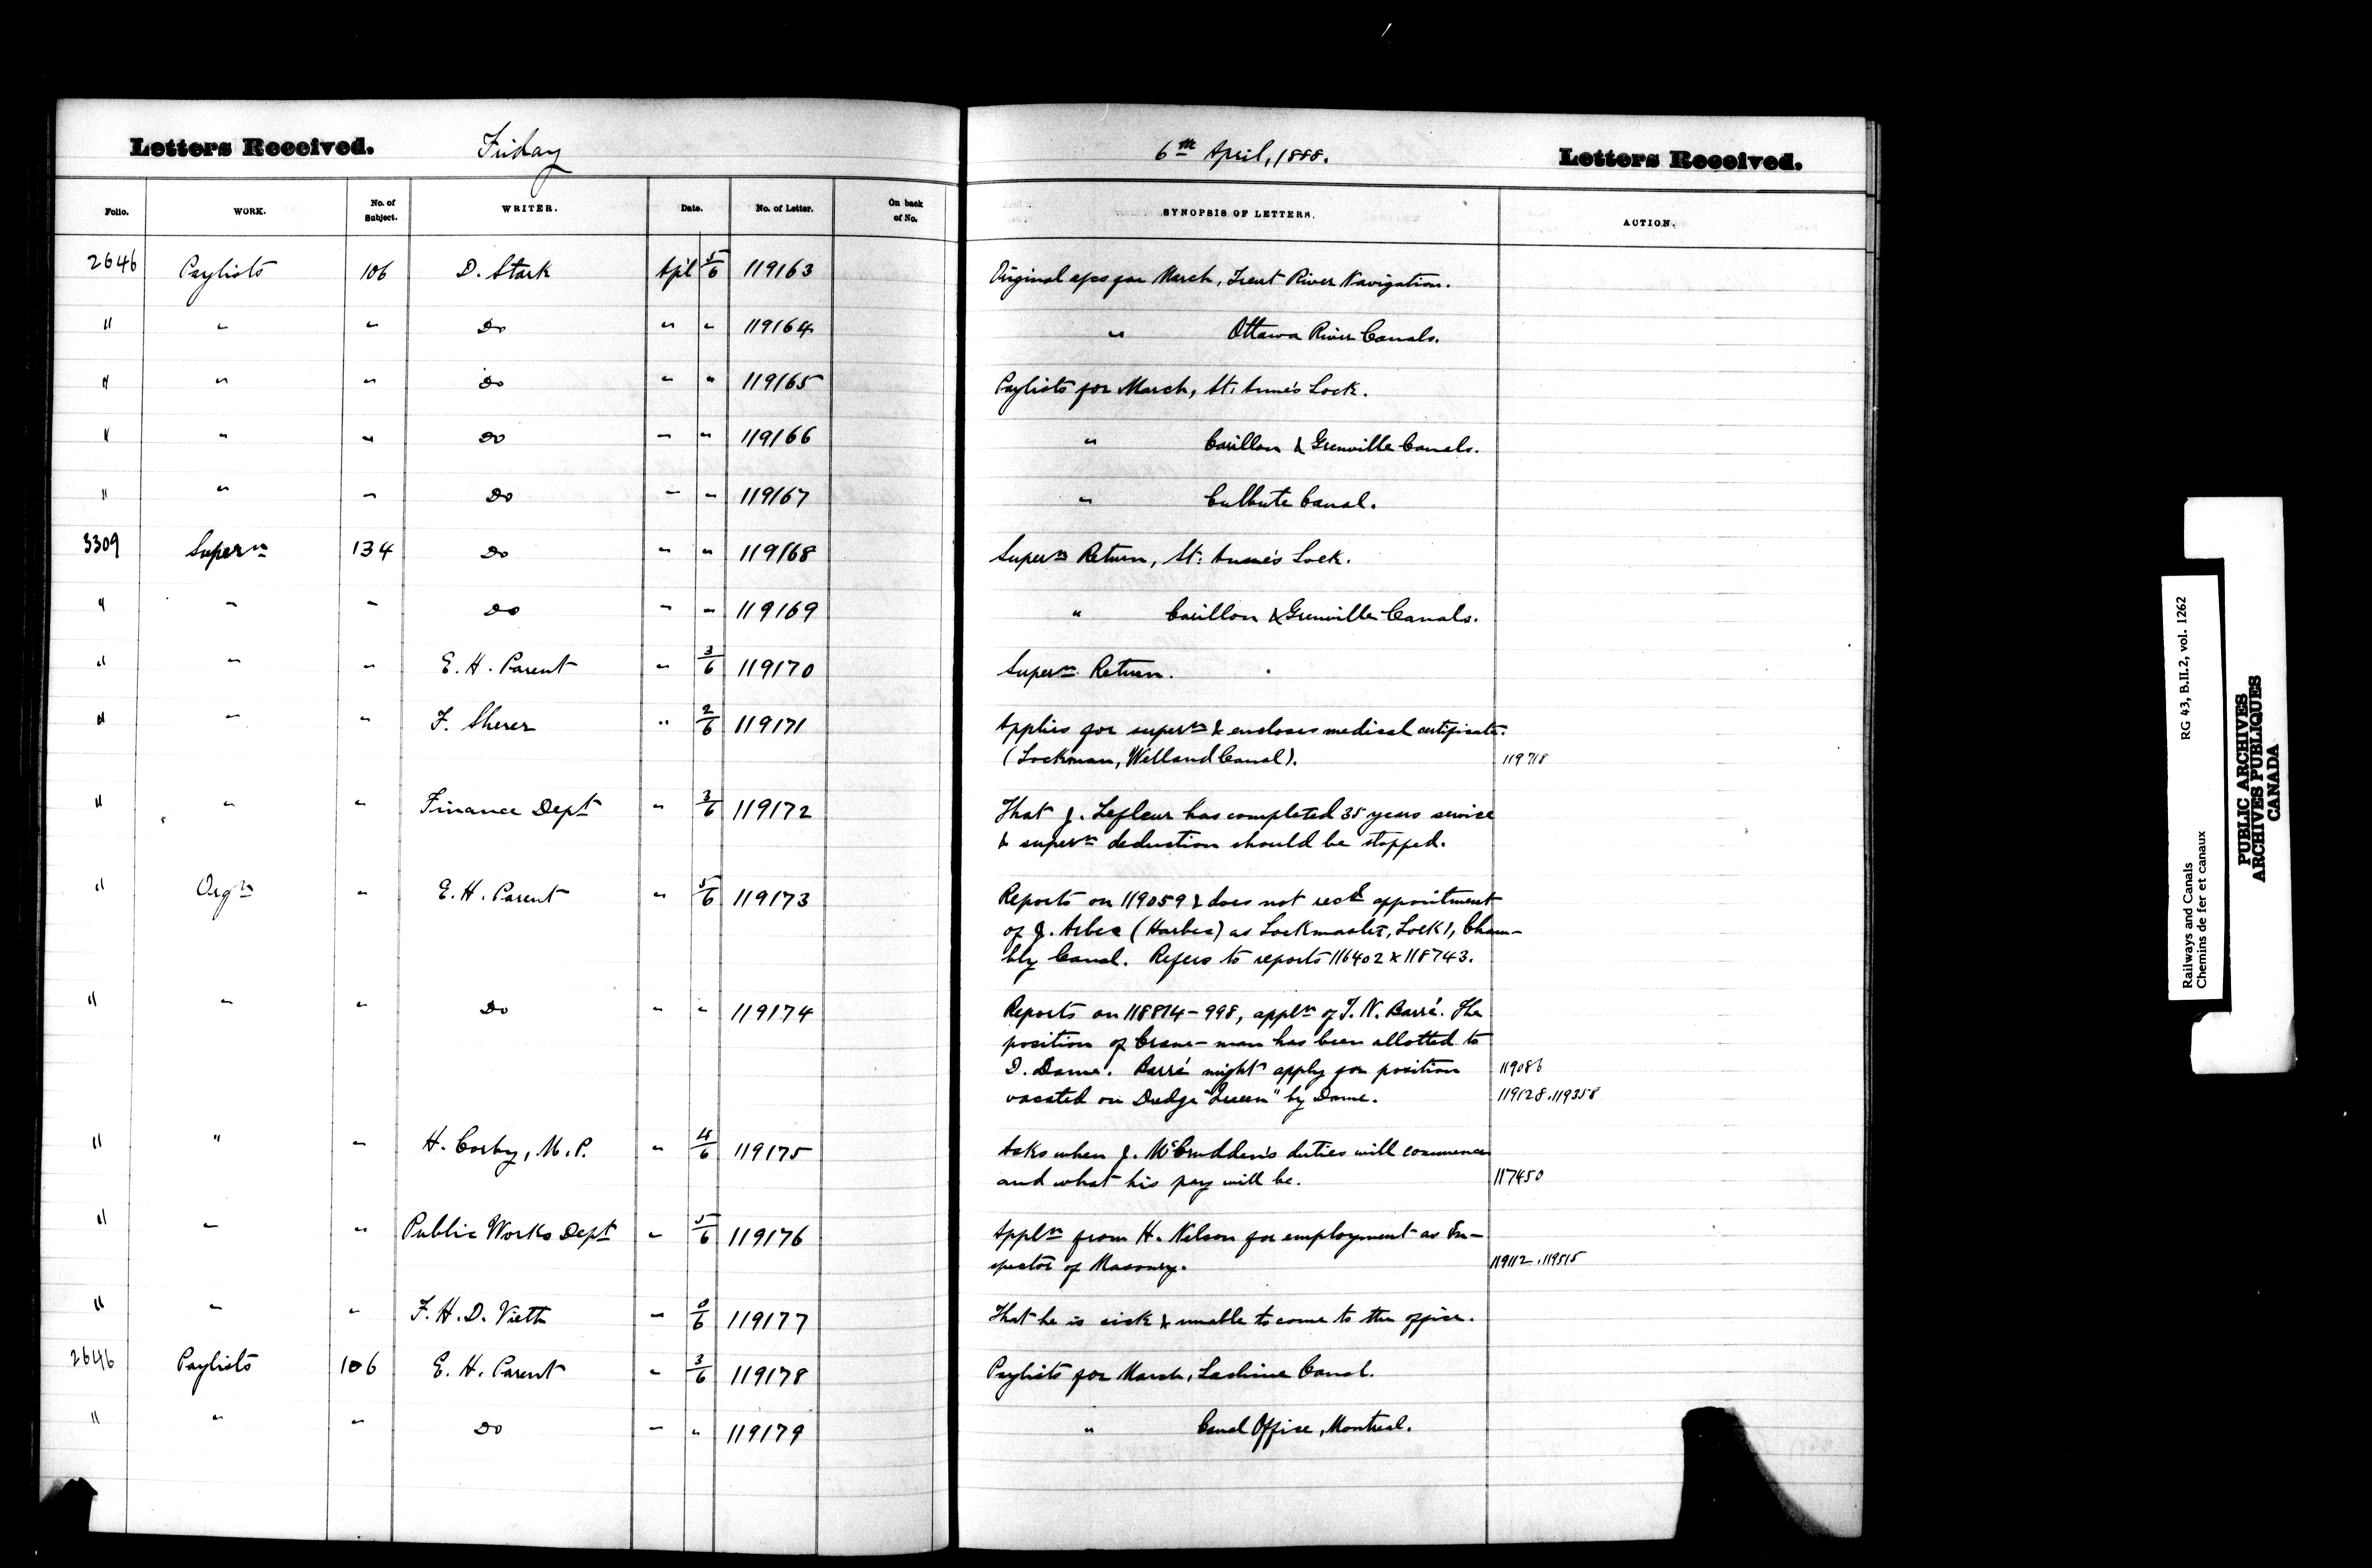 Letters Received. Friday 6th April, 1888. Letters Received.
Folio. WORK. No. of Subject. WRITER. Date. No. of Letter. On back of No. SYNOPSIS OF LETTERS. ACTION.
2646 Paylists 106 D. Stark Apl 5/6 119163 Original for March, Trent River Navigation.
" " " Do " " 119164 " Ottawa River Canals.
" " " Do " " 119165 Paylists for March, St. Anne's Lock.
" " " Do " " 119166 " Carillon & Grenville Canals.
" " " Do " " 119167 " Culbute Canal.
3309 Supern 134 Do " " 119168 Supern Return, St. Anne's Lock.
" " " Do " " 119169 " Carillon & Grenville Canals.
" " " E. H. Parent " 3/6 119170 Supern Return.
" " " F. Sherer " 2/6 119171 Applies for supern & encloses medical certificate.
(Lockman, Welland Canal). 119718
" " " Finance Dept " 3/6 119172 That J. Lefleur has completed 35 years service
& supern deduction should be stopped.
" Orgn " E. H. Parent " 5/6 119173 Reports on 119059 & does not recd appointment
of J. Arbec (Harbec) as Lockmaster, Lock 1, Cham-
bly Canal. Refers to reports 116402 & 118743.
" " " Do " " 119174 Reports on 118814-998, appln of T. N. Barré. The
position of Crane-man has been allotted to
D. Dame. Barré might apply for position 119086
vacated on Dredge "Queen" by Dame. 119128.119358
" " " H. Corby, M.P. " 4/6 119175 Asks when J. McCrudden's duties will commence
and what his pay will be. 117450
" " " Public Works Dept " 5/6 119176 Appln from H. Nelson for employment as In-
spector of Masonry. 119112.119515
" " " F. H. D. Vieth " 0/6 119177 That he is sick & unable to come to the office.
2646 Paylists 106 E. H. Parent " 3/6 119178 Paylists for March, Lachine Canal.
" " " Do " " 119179 " Canal Office, Montreal.
Railways and Canals RG 43, B.II.2, vol. 1262
Chemins de fer et canaux
PUBLIC ARCHIVES
ARCHIVES PUBLIQUES
CANADA